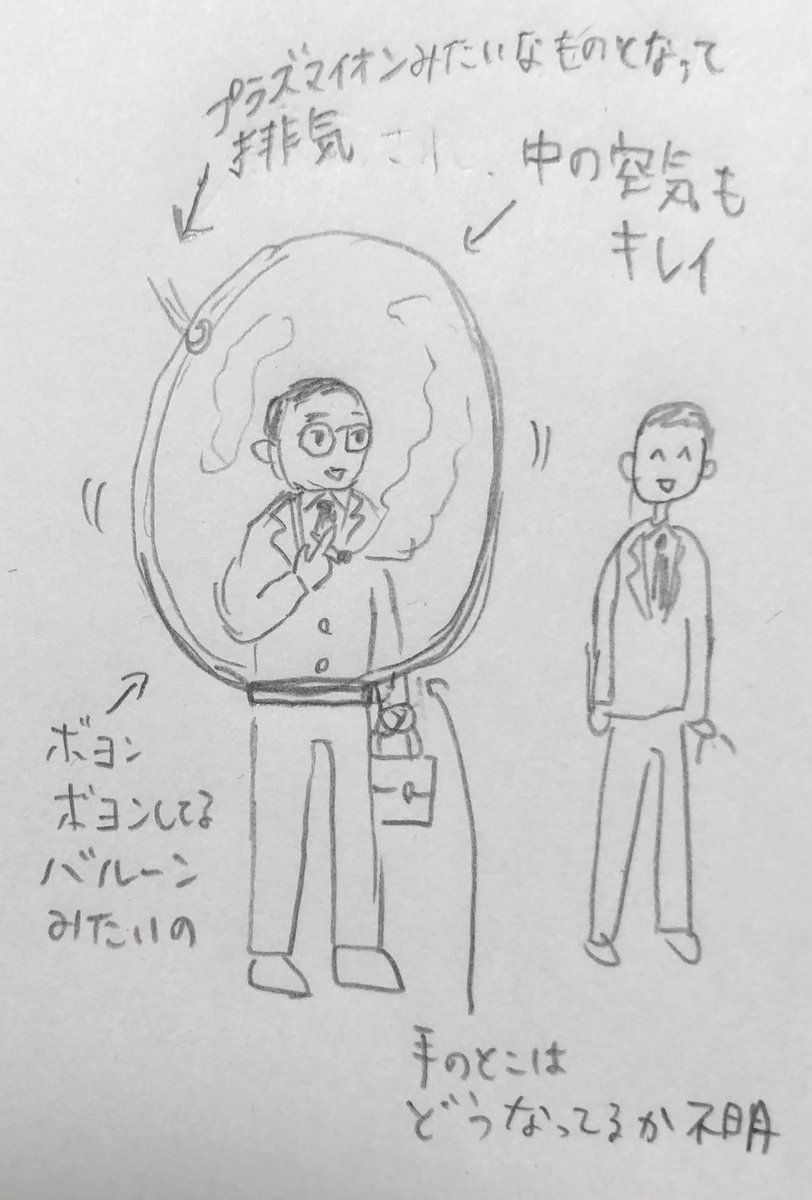 プラズマイオンみたいなものとなって
排気され、
中の空気も
キレイ
ボヨン
ボヨンしてる
バルーン
みたいの
手のとこは
どうなってるか不明